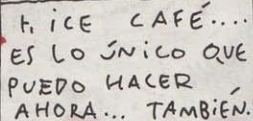 HICE CAFÉ....
ES LO ÚNICO QUE
PUEDO HACER
AHORA... TAMBIÉN.